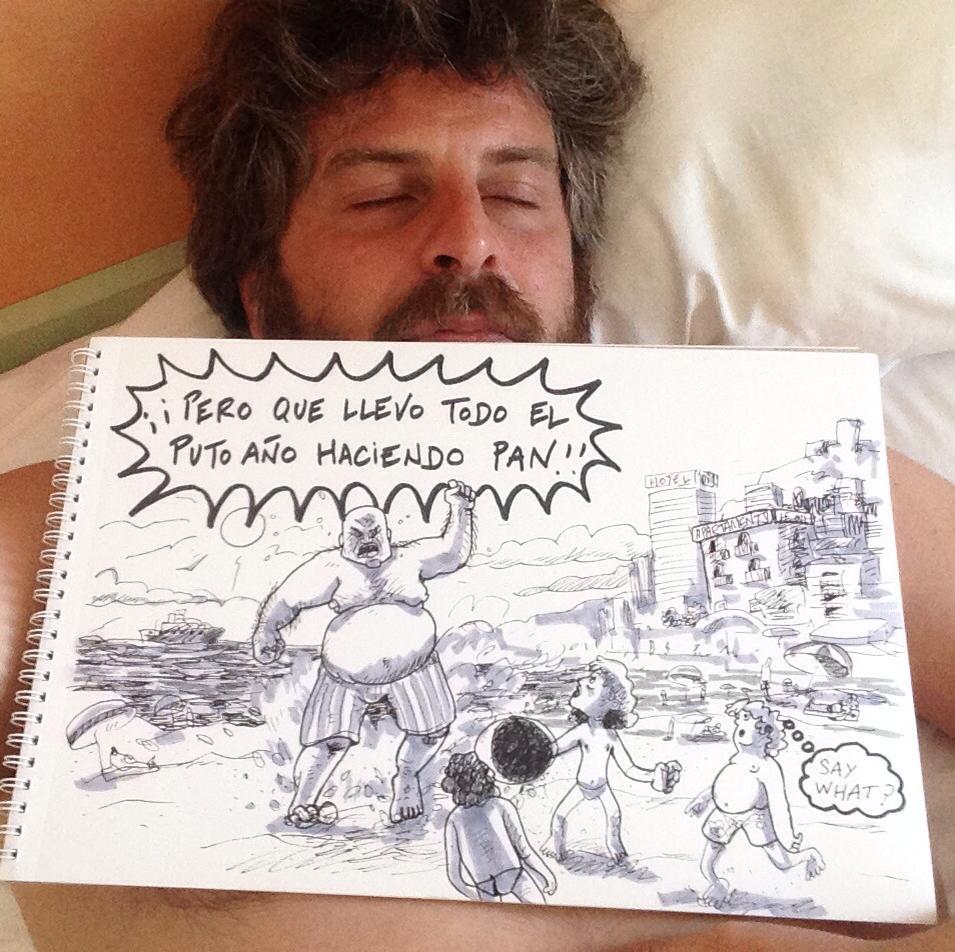 ¡¡PERO QUE LLEVO TODO EL
PUTO AÑO HACIENDO PAN!!
HOTEL
SAY
WHAT?